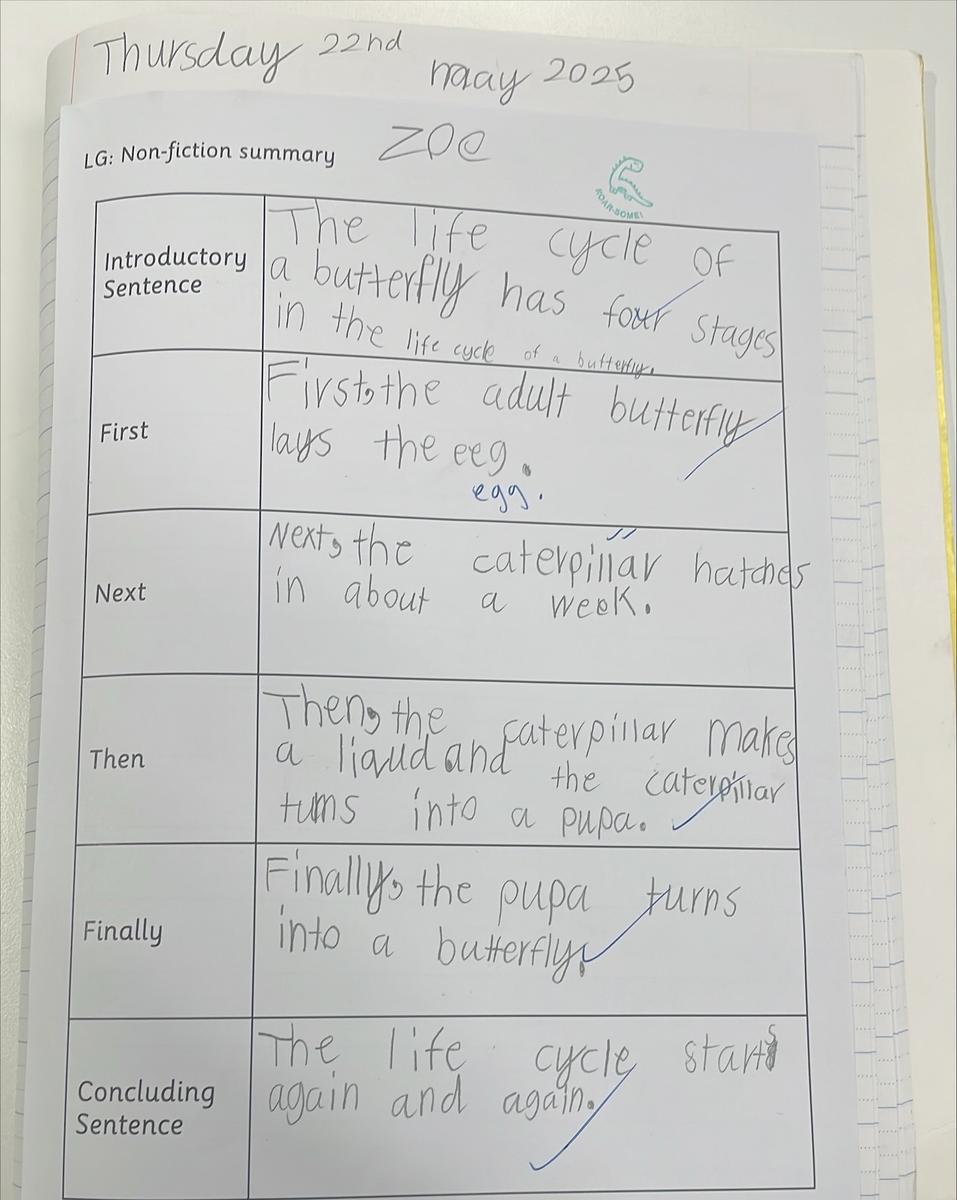 Thursday 22nd
maay 2025
LG: Non-fiction summary
Zoe
ROAR-SOME!
Introductory
Sentence
The life cycle of
a butterfly has four stages
in the life cycle of a butterfly.
First
First, the adult butterfly
lays the eeg.
egg.
Next
Next, the caterpillar hatches
in about a week.
Then
Then, the caterpillar makes
a liqud and the caterpillar
turns into a pupa.
Finally
Finally, the pupa turns
into a butterfly.
Concluding
Sentence
The life cycle starts
again and again.